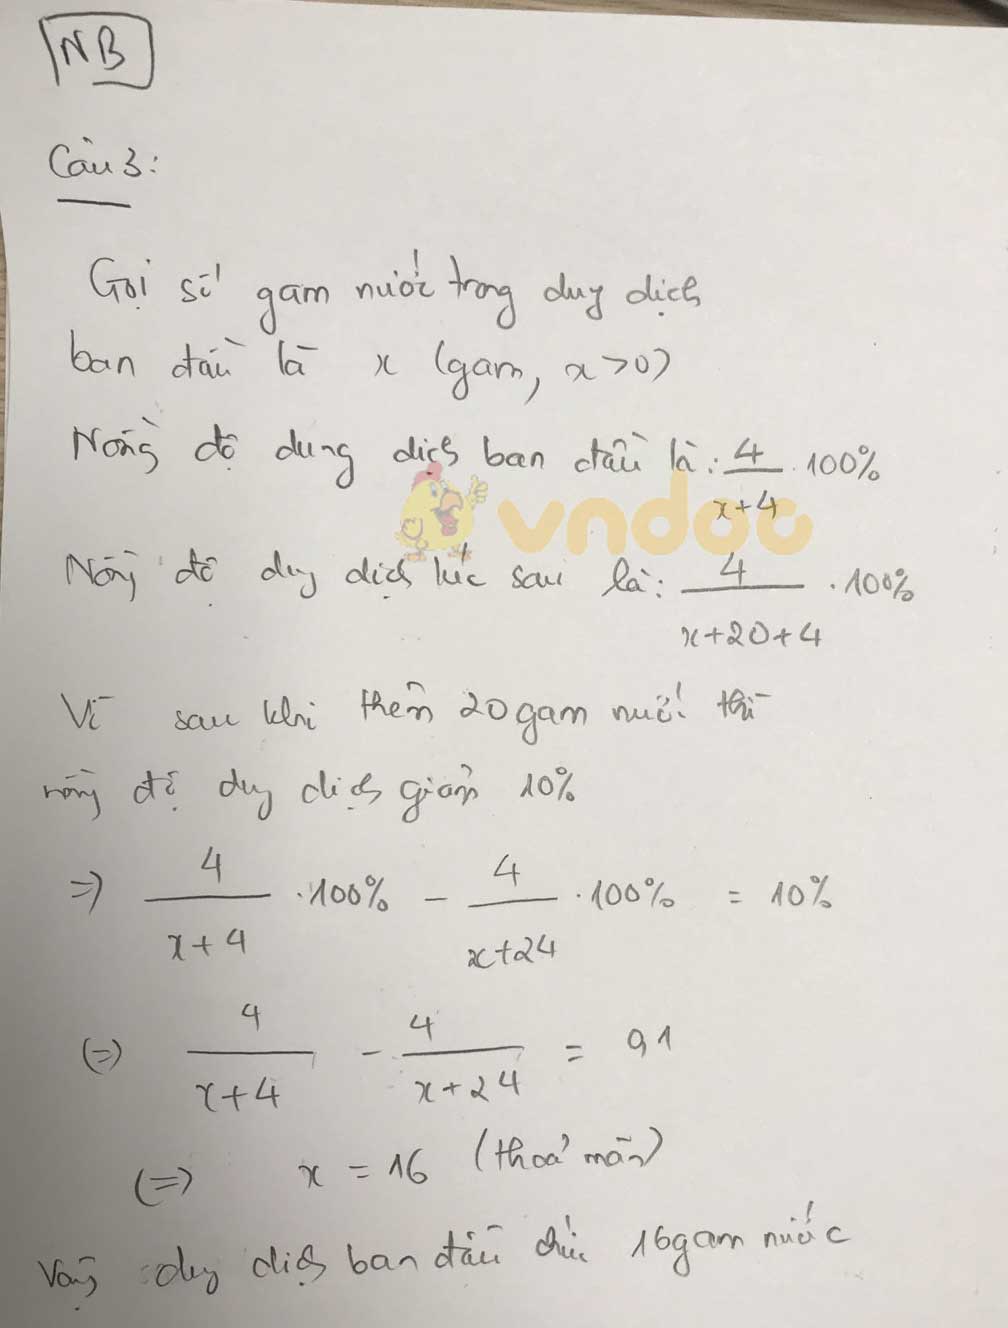 NB
Câu 3:
Gọi số gam nước trong dung dịch
ban đầu là x (gam, x>0)
Nồng độ dung dịch ban đầu là: 4/(x+4) . 100%
vndoc
Nồng độ dung dịch lúc sau là: 4/(x+20+4) . 100%
Vì sau khi thêm 20gam nước thì
nồng độ dung dịch giảm 10%
=> 4/(x+4) . 100% - 4/(x+24) . 100% = 10%
(=) 4/(x+4) - 4/(x+24) = 0,1
(=) x = 16 (thoả mãn)
Vậy dung dịch ban đầu chứa 16gam nước